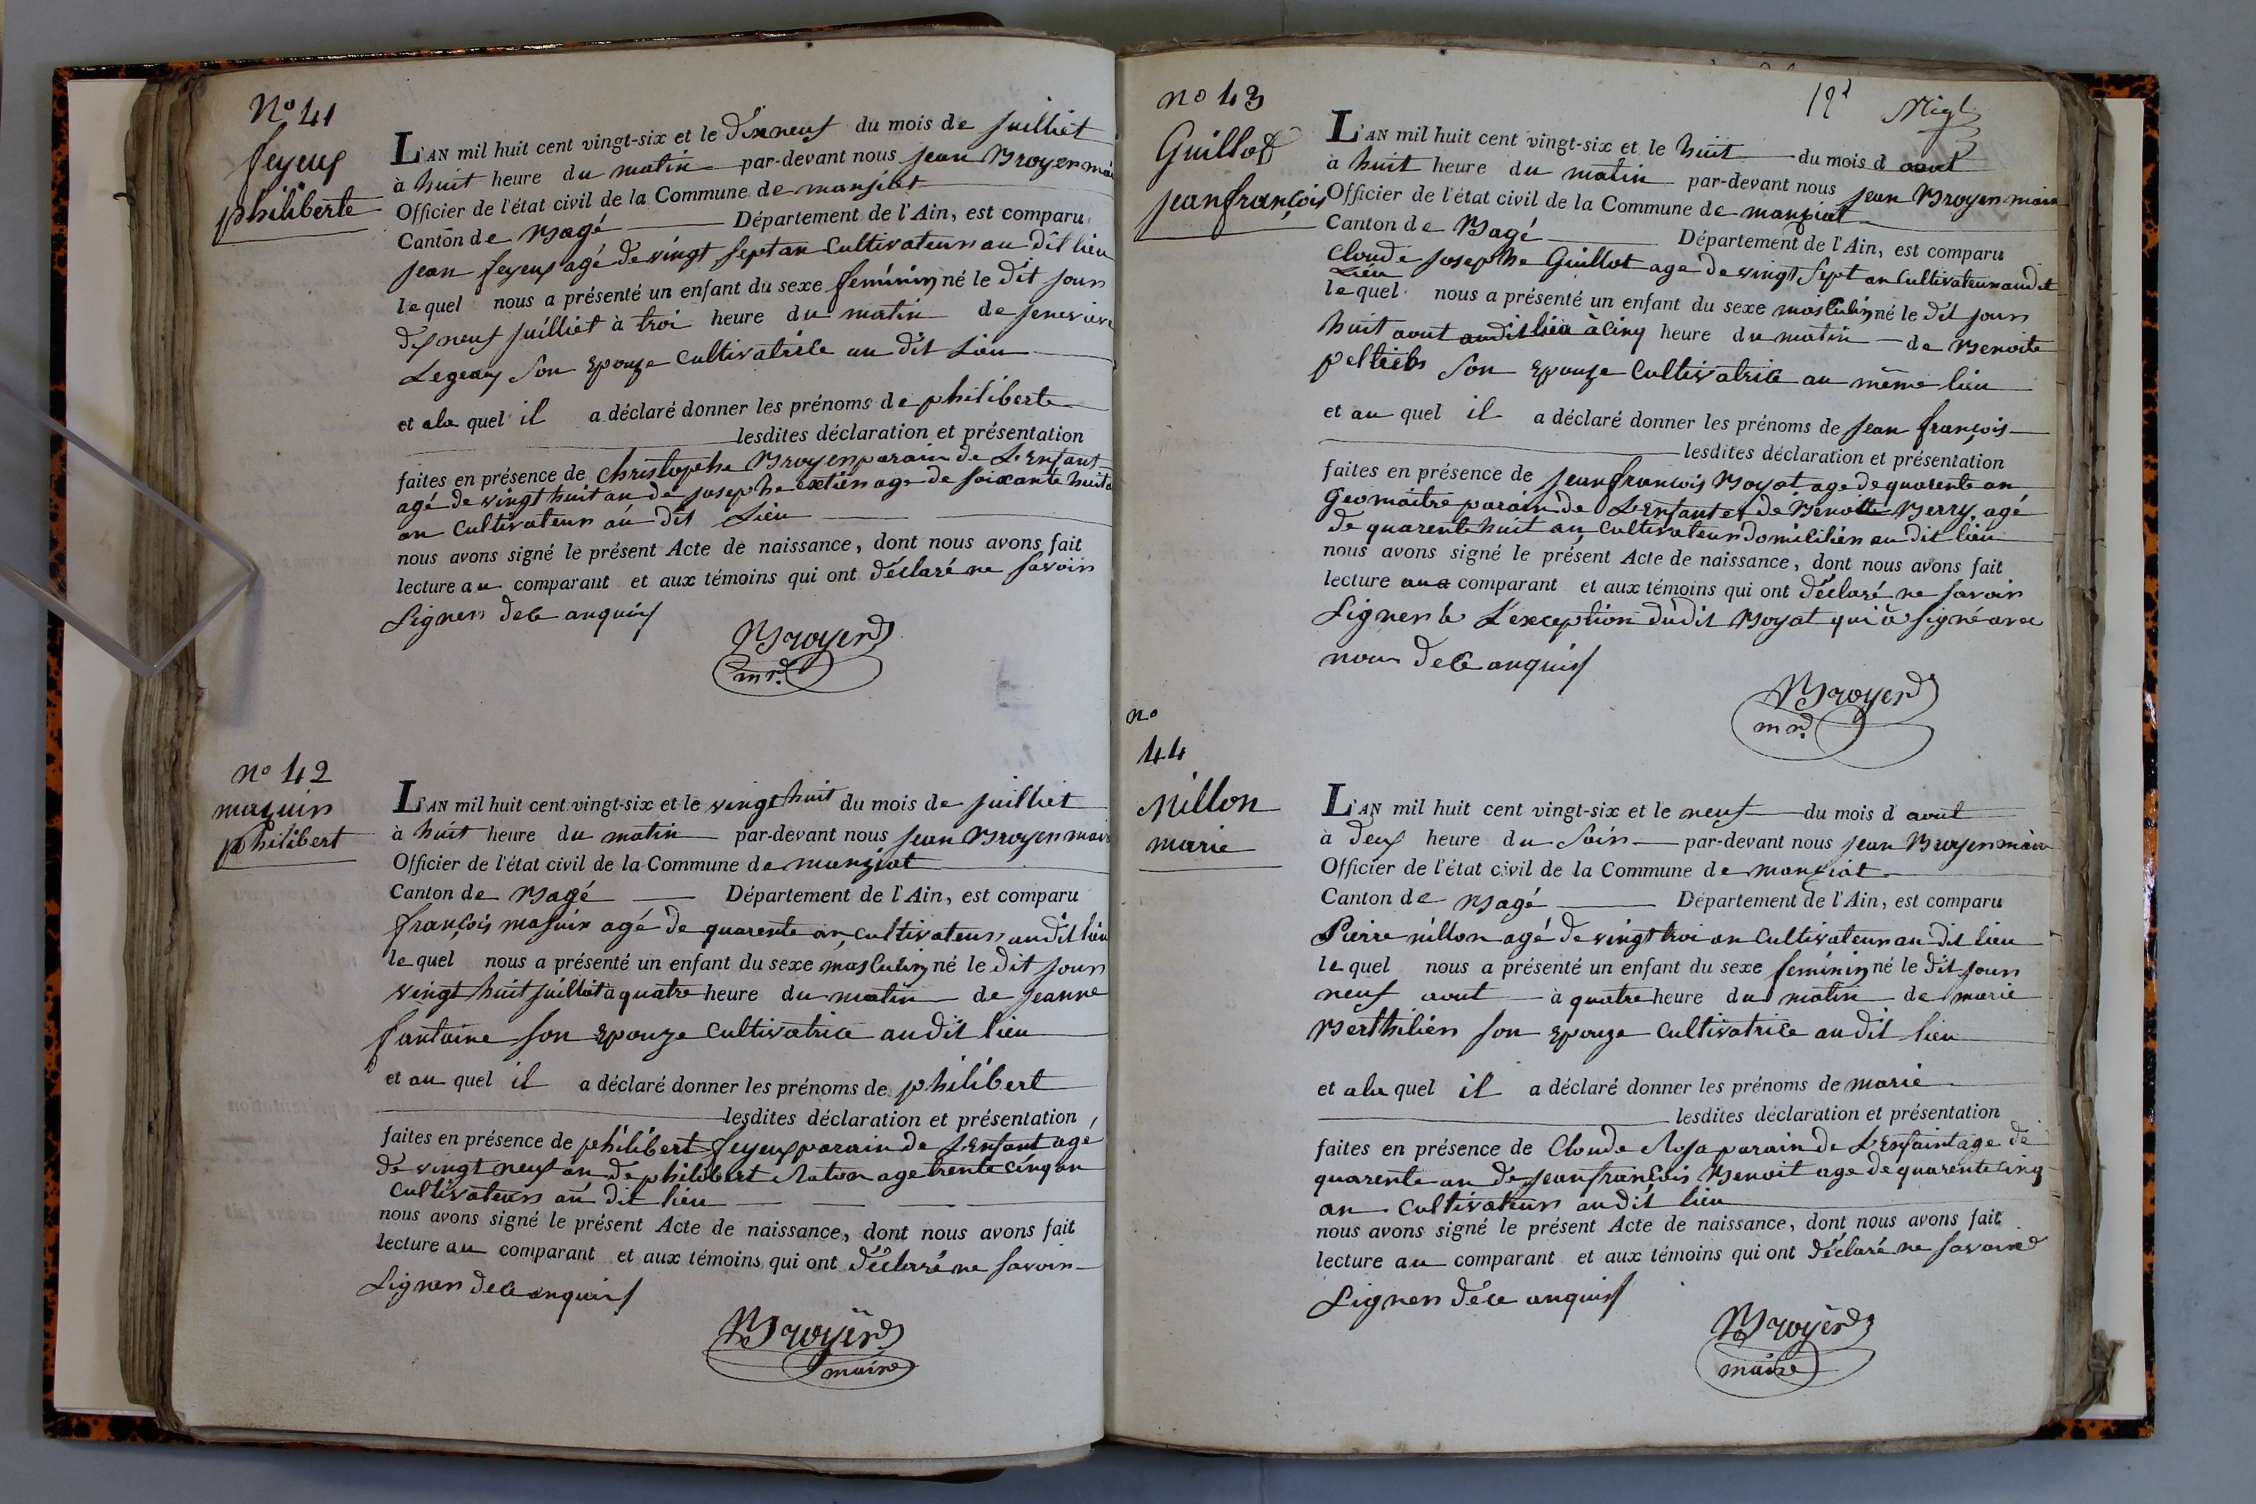 N° 41
feyeux
philiberte
L'AN mil huit cent vingt-six et le dixneuf du mois de juilliet
à huit heure du matin par-devant nous jean Broyer mai
Officier de l'état civil de la Commune de manziat
Canton de Bagé Département de l'Ain, est comparu
jean feyeux agé de vingt sept an Cultivateur au dit lieu
lequel nous a présenté un enfant du sexe feminin né le dit jour
dixneuf juilliet à troi heure du matin de jenevieve
Son Epouze Cultivatrice au dit Lieu
et ala quel il a déclaré donner les prénoms de philiberte
lesdites déclaration et présentation
faites en présence de Christophe Broyer parain de L'Enfant
agé de vingt huit an de josephe age de soixante huit
an Cultivateur au dit Lieu
nous avons signé le présent Acte de naissance, dont nous avons fait
lecture au comparant et aux témoins qui ont déclaré ne savoir
Signer de ce anquis
Broyer
mr.
n° 42
maguin
philibert
L'AN mil huit cent vingt-six et le vingt huit du mois de juilliet
à huit heure du matin par-devant nous jean Broyer mair
Officier de l'état civil de la Commune de manziat
Canton de Bagé Département de l'Ain, est comparu
françois maguin agé de quarente an, cultivateur au dit lieu
lequel nous a présenté un enfant du sexe masculin né le dit jour
vingt huit juilliet à quatre heure du matin de jeanne
fantaine son Epouze Cultivatrice au dit lieu
et au quel il a déclaré donner les prénoms de philibert
lesdites déclaration et présentation
faites en présence de philibert feyeux parain de L'Enfant agé
de vingt neuf an, de philibert Raton age trente cinq an
Cultivateur au dit lieu
nous avons signé le présent Acte de naissance, dont nous avons fait
lecture au comparant et aux témoins qui ont déclaré ne savoir
Signer de ce anquis
Broyer
maire
n° 43
Guillot
jean françois
L'AN mil huit cent vingt-six et le huit du mois d aout
à huit heure du matin par-devant nous jean Broyer maire
Officier de l'état civil de la Commune de manziat
Canton de Bagé Département de l'Ain, est comparu
Cloude josephe Guillot age de vingt sept an Cultivateur au dit
Lieu
lequel nous a présenté un enfant du sexe masculin né le dit jour
huit aout au dit lieu à cinq heure du matin de Benoite
son Epouze Cultivatrice au même lieu
et au quel il a déclaré donner les prénoms de jean françois
lesdites déclaration et présentation
faites en présence de jean francois Boyat age de quarente an
Geomaitre parain de L'Enfant et de Benoit Berry agé
de quarente huit an, Cultivateur domicilier au dit lieu
nous avons signé le présent Acte de naissance, dont nous avons fait
lecture au comparant et aux témoins qui ont déclaré ne savoir
Signer à L'exception dudit Boyat qui à signé avec
nous de ce anquis
Broyer
mr.
n°
44
Nillon
marie
L'AN mil huit cent vingt-six et le neuf du mois d aout
à deux heure du Soir par-devant nous jean Broyer maire
Officier de l'état civil de la Commune de manziat
Canton de Bagé Département de l'Ain, est comparu
Pierre nillon agé de vingt troi an Cultivateur au dit lieu
lequel nous a présenté un enfant du sexe feminin né le dit jour
neuf aout à quatre heure du matin de marie
Berthilier son Epouze Cultivatrice au dit lieu
et ala quel il a déclaré donner les prénoms de marie
lesdites déclaration et présentation
faites en présence de Cloude parain de L'Enfaint age de
quarente an de jean françois Benoit age de quarente cinq
an Cultivateur au dit lieu
nous avons signé le présent Acte de naissance, dont nous avons fait
lecture au comparant et aux témoins qui ont déclaré ne savoir
Signer de ce anquis
Broyer
maire